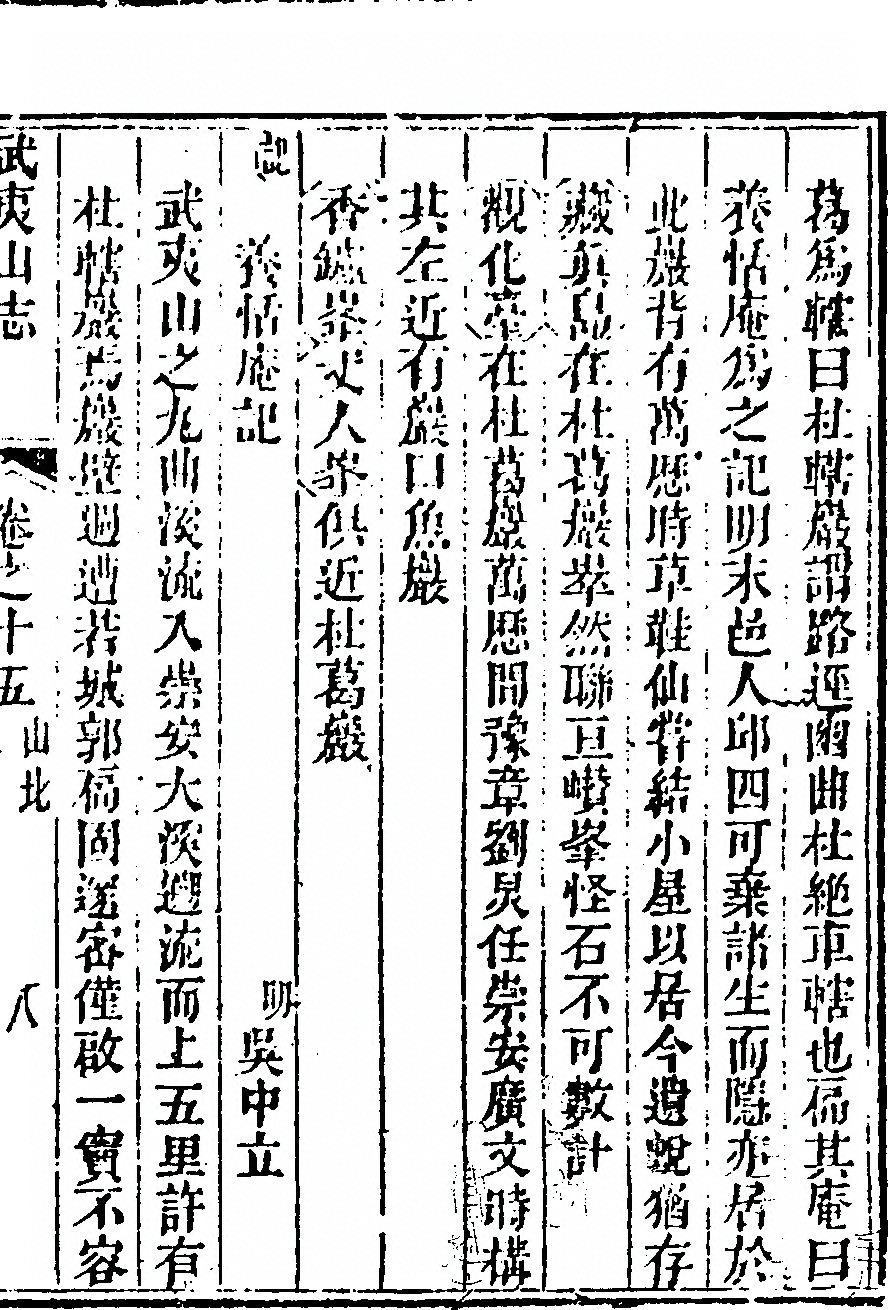 葛爲轄曰杜轄巖謂路逕幽曲杜絶車轄也扁其庵曰
養恬庵爲之記明末邑人邱四可棄諸生而隱亦居於
此巖背有萬厯時草鞋仙嘗結小屋以居今遺蛻猶存
藏真島在杜葛巖崒然聯亘巑峯怪石不可數計
觀化臺在杜葛巖萬厯間豫章劉炅任崇安廣文時構
其左近有巖曰魚巖
香鑪峯丈人峯俱近杜葛巖
記
養恬庵記 明吳中立
武夷山之九曲溪流入崇安大溪遡流而上五里許有
杜轄巖焉巖壁週遭若城郭扃固邃密僅啟一竇不容
武夷山志 卷之十五 山北 八